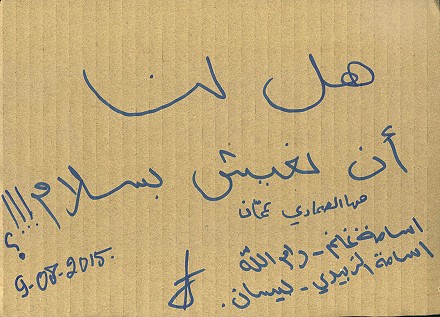 هل لنا
أن نعيش بسلام!!!!؟
مها الصمادي عمّان
اسامة غانم - رام الله
اسامة الزبيدي - بيسان.
9-08-2015.